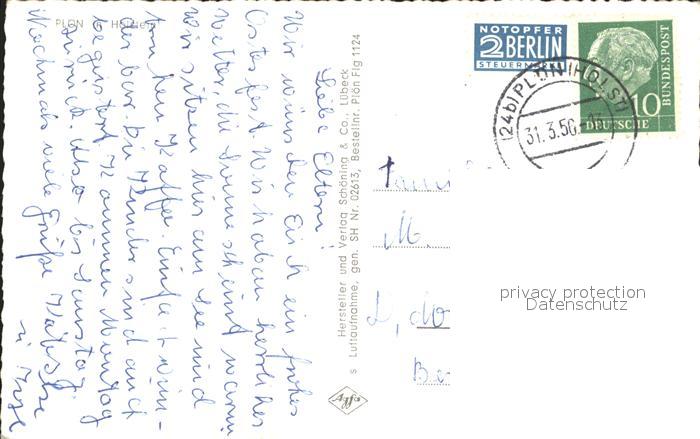 PLÖN Holstein
Liebe Eltern!
Wir wünschen Euch ein frohes
Osterfest. Wir haben herrliches
Wetter, die Sonne scheint warm
wir sitzen hier am See und
trinken Kaffee. Einfach wun-
derbar. Die Kinder sind auch
begeistert. Kommen Montag
zurück. Also bis Samstag
Nochmals viele Grüße
Hersteller und Verlag Schöning & Co., Lübeck
s Luftaufnahme, gen. SH Nr. 02613, Bestellnr. Plön Flg 1124
Agfa
NOTOPFER
2 BERLIN
STEUERMARKE
10
DEUTSCHE
BUNDESPOST
(24b) PLÖN (HOLST)
31.3.56.
Fami
M.
L,
Be
privacy protection
Datenschutz